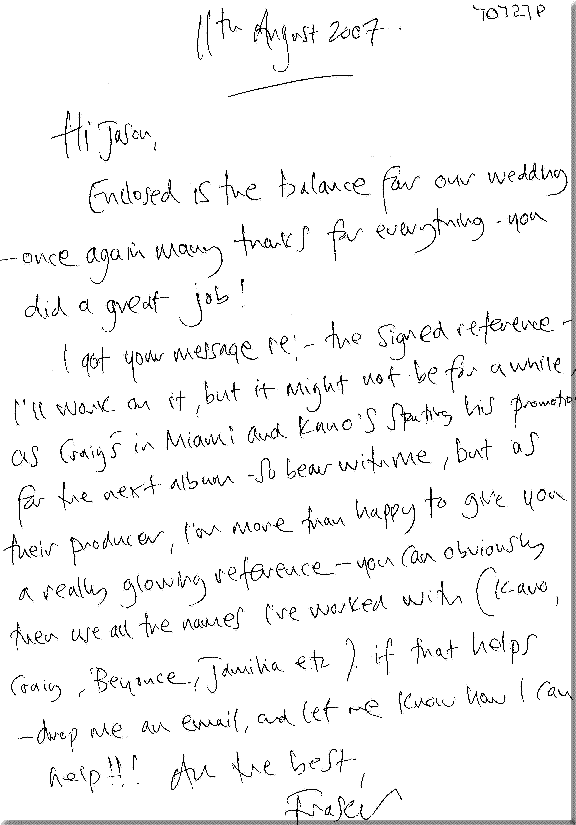 70727P
11th August 2007.
Hi Jason,
Enclosed is the balance for our wedding
-once again many thanks for everything - you
did a great job!
I got your message re:- the signed reference -
I'll work on it, but it might not be for a while,
as Craig's in Miami and Kano's starting his promotion
for the next album - so bear with me, but as
their producer, I'm more than happy to give you
a really glowing reference - you can obviously
then use all the names I've worked with (Kano,
Craig, Beyonce, Jamilia etc) if that helps
- drop me an email, and let me know how I can
help!!! All the best,
Fraser